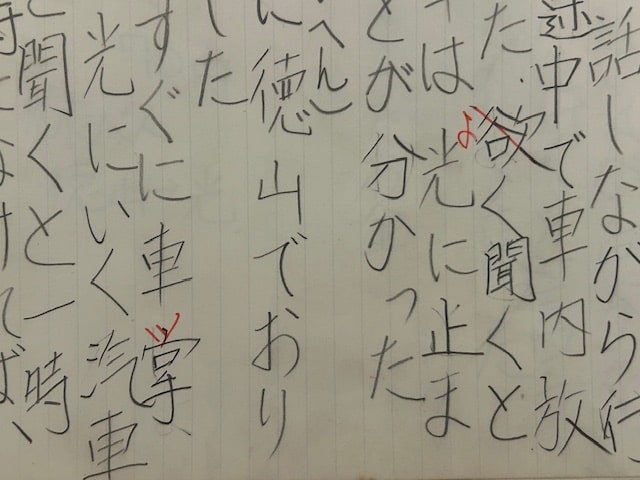 話しながら行
途中で車内放
た.欲く聞くと
よ
は光に止ま
とが分かった
へんし
に徳山でおり
した
すぐに車掌
光にいく汽車
と聞くと一時
時になければ、